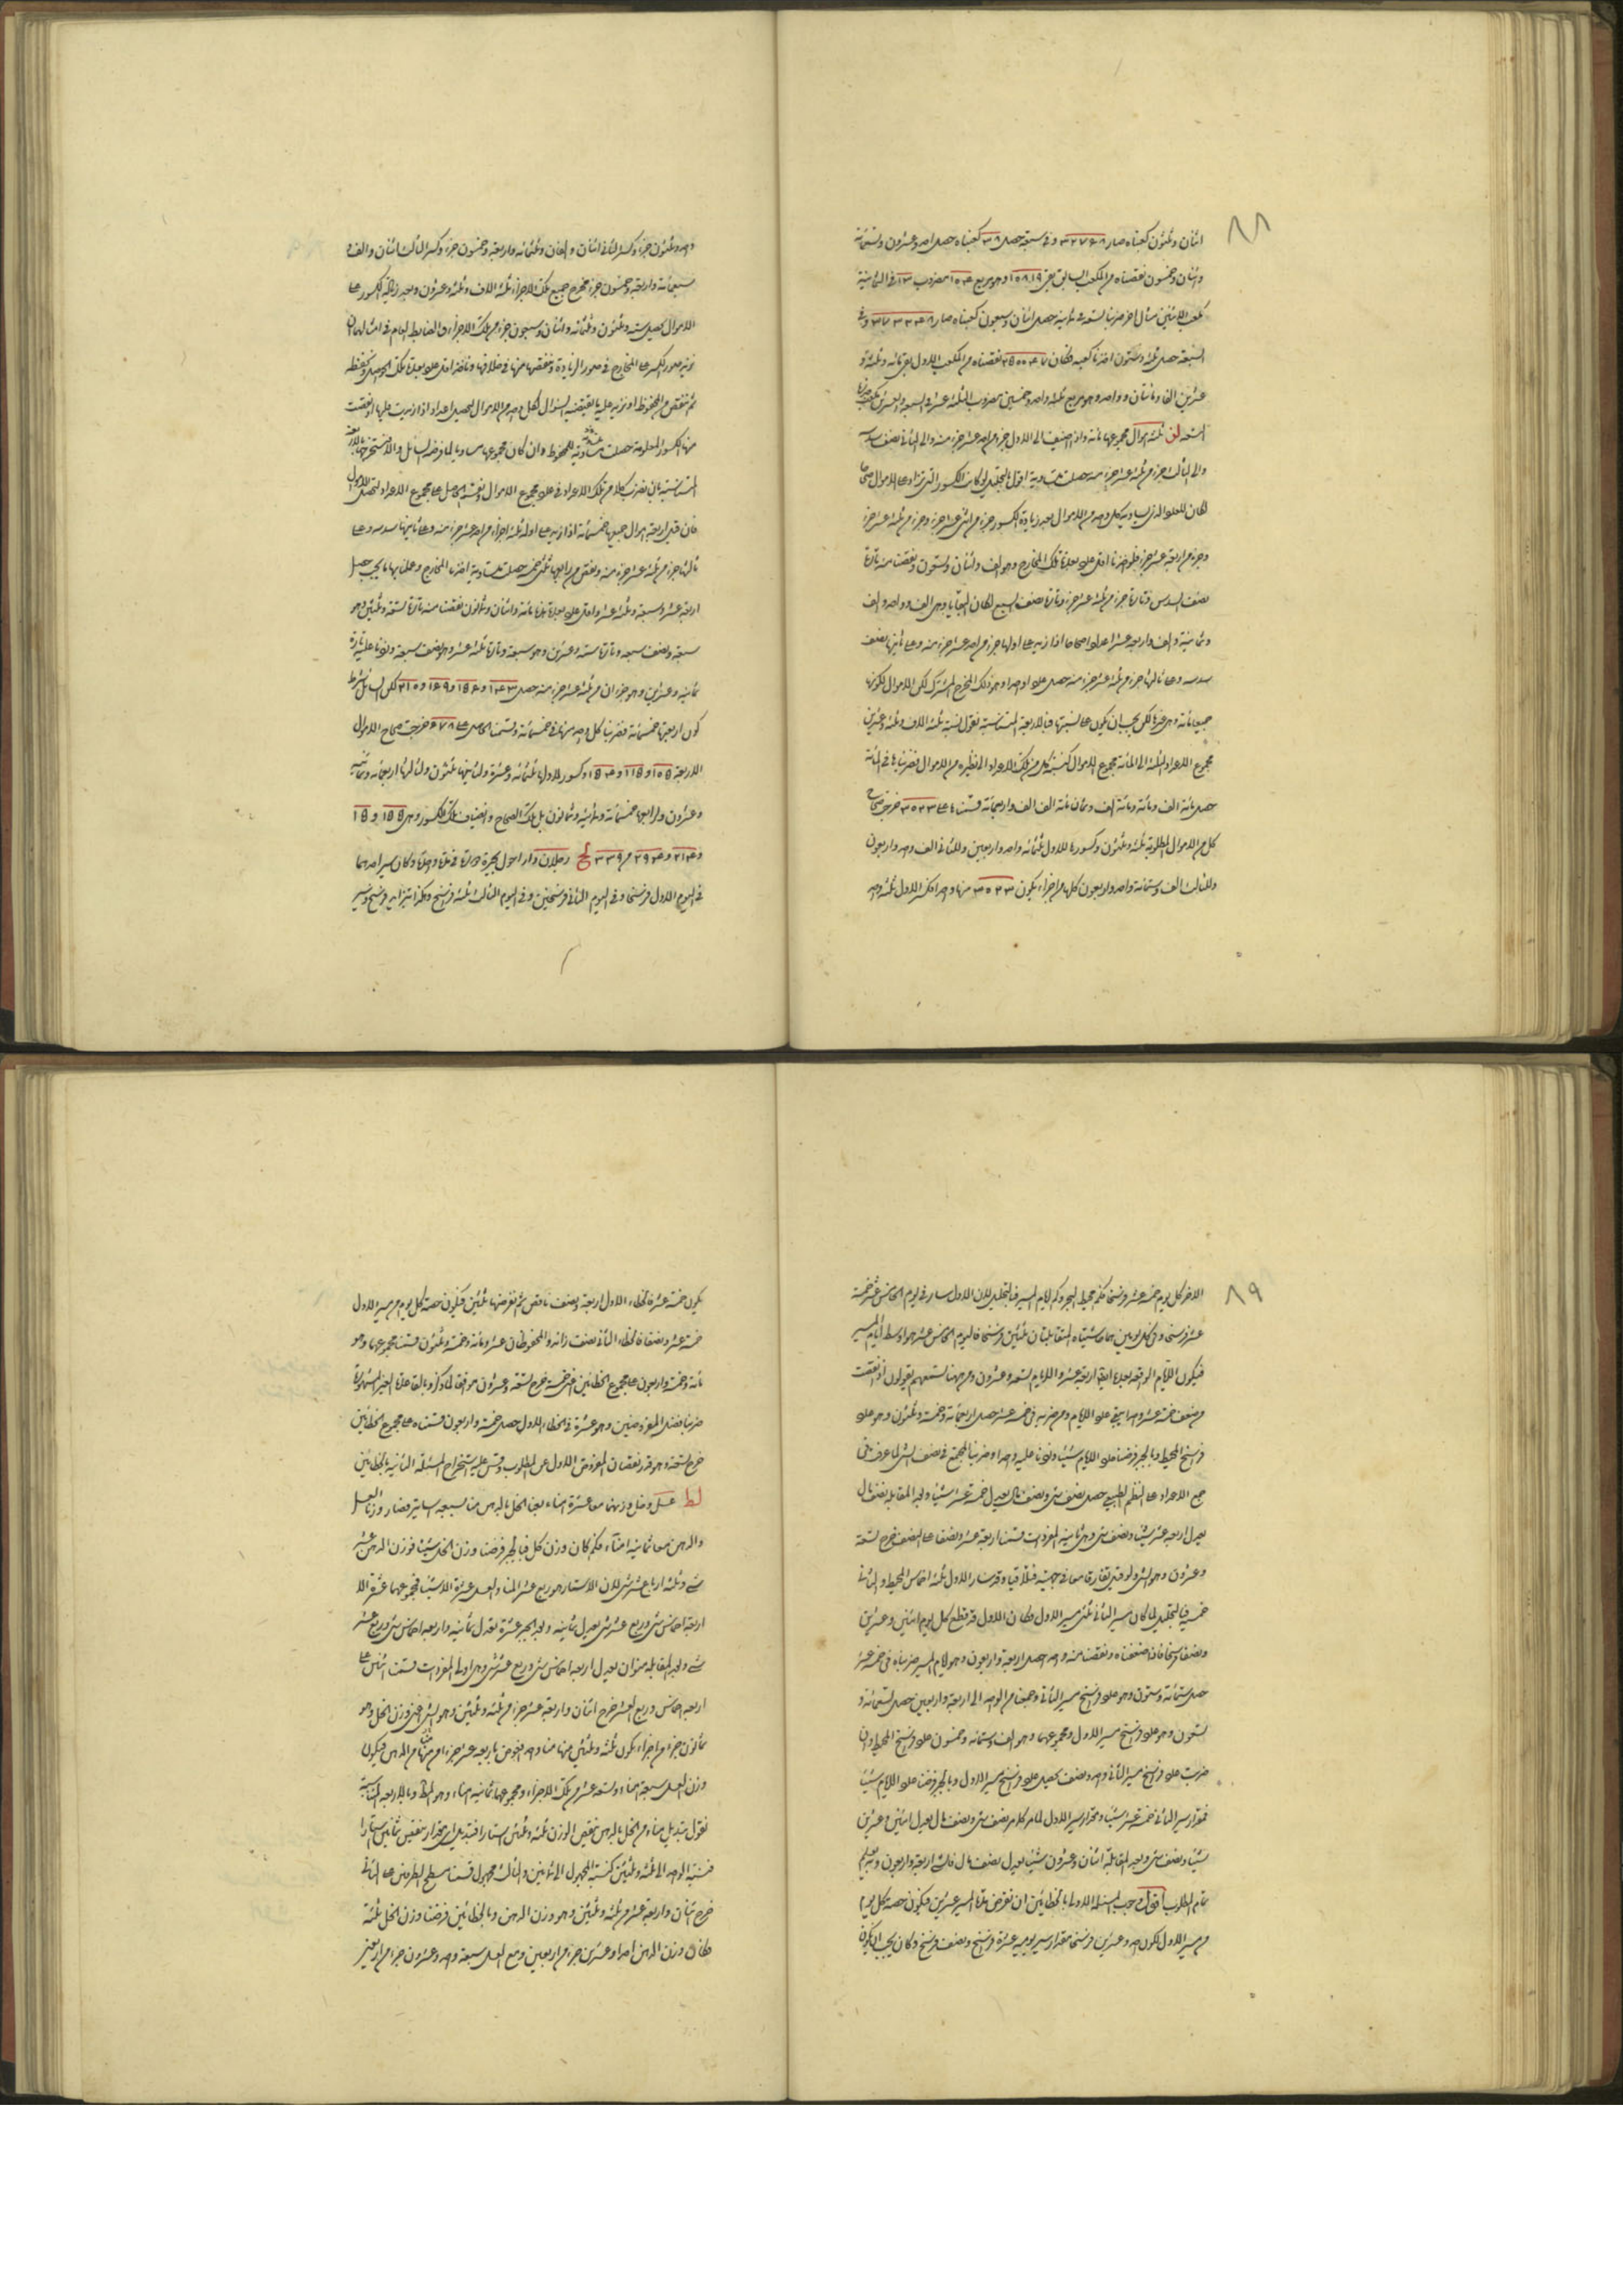 ٨٨
اثنان وثلثون كعبناه صار ٣٢٧٦٨ وفى سبعة حصل كعبناه حصل احد وعشرون وتسعمائة
واثنان وخمسون نقصناه من المكعب السابق بقى ١٥٨١٩ وهو مربع مضروب فى الثمانية
مكعب الاثنين مثال اخر ضربنا التسعة فى ثمانية حصل اثنان وسبعون كعبناه صار ٣٧٣٢٤٨ وفى
السبعة حصل ثلثة وستون اخذنا كعبه فكان نقصناه من المكعب الاول بقى مائة وثلثة و
عشرين الفا ومائتان وواحد وهو مربع ثلثمائة واحد وخمسين مضروب الثلثة عشر فى السبعة والعشرين مكعب
التسعة لز ثلثة اموال مجموعها مائة واذا اضيف الى الاول جزء من احد عشر جزء منه والى الثانى نصف سدسه
والى الثالث جزء من ثلثة عشر جزء منه حصلت متساوية اقول بالتحليل لو كانت الكسور التى تزاد على الاموال صحاحا
لكان العدد الذى يساويه كل واحد من الاموال بعد زيادة الكسور جزء من اثنى عشر جزء وجزء من ثلثة عشر جزء
وجزء من اربعة عشر جزء فلو اخذنا اقل عدد يعد تلك المخارج وهو الف واثنان وتسعون ونقصنا منه تارة
نصف السدس وتارة جزء من ثلثة عشر جزء وتارة نصف السبع لكان البقايا وهى الف وواحد والف
وثمانية والف واربعة عشر اعدادا صحاحا اذا زيد على اولها جزء من احد عشر جزء منه وعلى ثانيها نصف
سدسه وعلى ثالثها جزء من ثلثة عشر جزء منه حصل عدد واحد وهو ذلك المخرج المشترك لكن الاموال لكونها
جميعا مائة وجب ان يكون على نسبتها فبالاربعة المتناسبة نقول نسبة ثلثة الاف وثلثة وعشرين
مجموع الاعداد الثلثة الى المائة مجموع الاموال كنسبة كل من تلك الاعداد الى نظيره من الاموال فضربناها فى المائة
حصل مائة الف ومائة ومائة الف وثمان مائة الف الف واربعمائة قسمناها على ٣٠٢٣ خرج صحاح
كل من الاموال المطلوبة ثلثة وثلثون وكسورها للاول ثلثمائة واحد واربعين وللثانى الف واحد واربعون
وللثالث الف وستمائة واحد واربعون كلها من اجزاء يكون ٣٠٢٣ منها واحدا فكسر الاول ثلثة واحد
واحد وثلثون جزء وكسر الثانى اثنان والفان وثلثمائة واربعة وخمسون جزء وكسر الثالث اثنان والف و
سبعمائة واربعة وخمسون جزء فخرج جميع تلك الاجزاء ثلثة الاف وثلثة وعشرون وبعد زيادة الكسور على
الاموال يحصل ستة وثلثون وثلثمائة واثنان وسبعون جزء من تلك الاجزاء والضابط العام فى امثالها ان
نزيد صور الكسر على المخارج فى صور الزيادة وننقصها منها فى خلافها وناخذ اقل عدد يعده تلك الحواصل ونحفظه
ثم ننقص من المحفوظ او نزيد عليه ما يقتضيه السؤال لكل واحد من الاموال ليحصل اعداد اذا زيدت عليها او نقصت
منها الكسور المعلومة حصلت متساوية للمحفوظ وان كان مجموعها مساويا لما فرضه السائل والا استخرجنا بالاربعة
المتناسبة بان نضرب كلا من تلك الاعداد فى عدد مجموع الاموال ونقسم الحاصل على مجموع الاعداد لتحصل الاموال
فان قيل اربعة اموال جميعها خمسمائة اذا زيد على اولها ثلثة اجزاء من احد عشر جزء منه وعلى ثانيها سدسه وعلى
ثالثها جزء من ثلثة عشر جزء منه ونقص من رابعها ثلثى خمسه حصلت متساوية اخذنا المخارج وعملنا بها ما يجب حصل
اربعة عشر وسبعة وثلثة عشر واقل عدد يعدها مائة واثنان وثمانون نقصنا منه تارة تسعة وثلثين وهو
سبعه ونصف سبعه وتارة ستة وعشرين وهو سبعه وتارة ثلثة عشر وهو نصف سبعه وزدنا عليه تارة
ثمانية وعشرين وهو جزء ان من ثلثة عشر جزء منه حصل ١٤٣ و ١٥٦ و ١٦٩ و ٢١٠ لكن السائل شرط
كون اربعتها خمسمائة فضربنا كل واحد منها فى خمسمائة وقسمنا الحاصل على ٦٧٨ خرجت صحاح الاموال
الاربعة ١٠٥ و ١١٥ و ١٢٤ وكسور للاولها ثلثمائة وعشرة ولثانيها ثلثون ولثالثها اربعمائة وثمانية
وعشرون ولرابعها خمسمائة وثمانية وثمانون بل تلك الصحاح وانصاف تلك الكسور وهى ١٥٥ و ١٥
و ٢١٤ و ٢٩٤ من ٣٣٩ لح رجلان دارا حول بحيرة مدارة فى مدة واحدة وكان سير احدهما
فى اليوم الاول فرسخا وفى اليوم الثانى فرسخين وفى اليوم الثالث ثلثة فراسخ وهكذا بتزايد فرسخ وسير
٨٩
الاخر كل يوم خمسة عشر فرسخا فكم محيط البحيرة وكم ايام المسير فبالتحليل لان الاول سار فى يوم الخامس عشر خمسة
عشر فرسخا وفى كل يومين هما حاشيتاه المتقابلتان ثلثين فرسخا فاليوم الخامس عشر هو اوسط ايام المسير
فيكون الايام الواقعة بعده ايضا اربعة عشر والايام تسعة وعشرون ومن ههنا تسمعهم يقولون اذا نقصت
من ضعف خمسة عشر واحدا بقى عدد الايام ومن ضربه فى خمسة عشر حصل اربعمائة وخمسة وثلثون وهو عدد
فراسخ المحيط وبالجبر فرضنا عدد الايام شيئا وزدنا عليه واحدا وضربنا المجتمع فى نصف الشئ لما عرف فى
جمع الاعداد على النظم الطبيعى حصل نصف شئ ونصف مال يعدل خمسة عشر شيئا وبعد المقابلة نصف مال
يعدل اربعة عشر شيئا ونصف شئ وهى ثانية المفردات قسمنا اربعة عشر ونصفا على النصف خرج تسعة
وعشرون وهو الشئ ولو قيل تفارقا معا فى جهتين فتلاقيا وقد سار الاول ثلثة اخماس المحيط والثانى
خمسيه فبالتحليل لما كان مسير الثانى ثلثى مسير الاول وكان الاول قد قطع كل يوم اثنين وعشرين
ونصف فرسخا فاذا ضعفناه ونقصنا منه واحد حصل اربعة واربعون وهو ايام المسير ضربناه فى خمسة عشر
حصل ستمائة وستون وهو عدد فراسخ مسير الثانى وجمعنا من الواحد الى اربعة واربعين حصل تسعمائة و
تسعون وهو عدد فراسخ مسير الاول ومجموعهما وهو الف وستمائة وخمسون عدد فراسخ المحيط وان
ضربت عدد فراسخ مسير الثانى واحد ونصف يحصل عدد فراسخ مسير الاول وبالجبر فرضنا عدد الايام شيئا
فمقدار سير الثانى خمسة عشر شيئا ومقدار سير الاول لما مر كلا من نصف شئ ونصف مال يعدل اثنين وعشرين
شيئا ونصف شئ وبعد المقابلة اثنان وعشرون شيئا يعدل نصف مال فالشئ اربعة واربعون وبه يعلم
تمام المطلوب اقول وحسب المسئلة الاولى بالخطائين ان نفرض مدة المسير عشرين فيكون حصة كل يوم
من مسير الاول لكونه واحد وعشرين فرسخا مقدار سير يومه عشرة فراسخ ونصف فرسخ وكان يجب ان يكون
يكون خمسة عشر فالخطاء الاول اربعة ونصف ناقص ثم نفرضها ثلثين فيكون حصة كل يوم من سير الاول
خمسة عشر ونصفا فالخطاء الثانى نصف زائد والمحفوظان عشرة ومائة وخمسة وثلثون قسمنا مجموعهما وهو
مائة وخمسة واربعون على مجموع الخطائين اعنى خمسة خرج تسعة وعشرون موافقا لما ذكر وبالقاعدة الغير المشهورة
ضربنا فضل المفروضين وهو عشرة فى الخطاء الاول حصل خمسة واربعون قسمناه على مجموع الخطائين
خرج تسعة وهو قدر نقصان المفروض الاول عن المطلوب وقس عليه استخراج المسئلة الثانية بالخطائين
لط عسل وخل وزنهما معا عشرة امناء بعنا الخل بالدهن منا بسبعة اساتير فصار وزنا العسل
والدهن معا ثمانية امناء فكم كان وزن كل فبالجبر فرضنا وزن الخل شيئا فوزن الدهن عشر
شئ وثلثة ارباع عشر شئ لان الاستار هو ربع عشر المنا والعسل عشرة الا شيئا فمجموعهما عشرة الا
اربعة اخماس شئ وربع عشر شئ يعدل ثمانية وبعد الجبر عشرة تعدل ثمانية واربعة اخماس شئ وربع عشر
شئ وبعد المقابلة منوان يعدل اربعة اخماس شئ وربع عشر شئ وهى اولى المفردات قسمنا اثنين على
اربعة اخماس وربع العشر خرج اثنان واربعة عشر جزء من ثلثة وثلثين وهو الشئ اعنى وزن الخل وهو
ثمانون جزء من اجزاء يكون ثلثة وثلثين منها منا واحد فيعوض باربعة عشر جزء من منها من الدهن فيكون
وزن العسل سبعة امناء وتسعة عشر من تلك الاجزاء ومجموعهما ثمانية امناء وهو المط وبالاربعة المتناسبة
نقول بتبديل مناء من الخل بالدهن نقص الوزن ثلثة وثلثين استارا فتبديل اى مقدار ينقص ثمانين استارا
فنسبة الواحد الى ثلثة وثلثين كنسبة المجهول الى ثمانين والثالث مجهول قسمنا مسطح الطرفين على الثانى
خرج اثنان واربعة عشر من ثلثة وثلثين وهو وزن الدهن وبالخطائين فرضنا وزن الخل ثلثة
فكان وزن الدهن احدا وعشرين جزء من اربعين ومع العسل سبعة واحد وعشرون جزء من اربعين